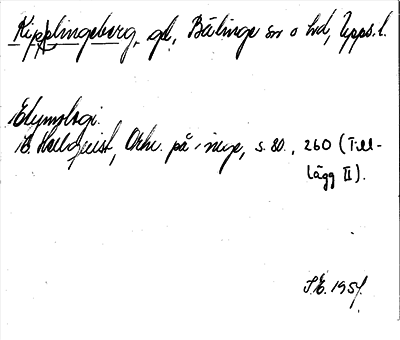 Kipplingeberg, gd, Bälinge sn o hd, Upps. l.
Etymologi.
E. Hellquist, Ortn. på -inge, s. 80., 260 (Till-
lägg II).
S.E. 195